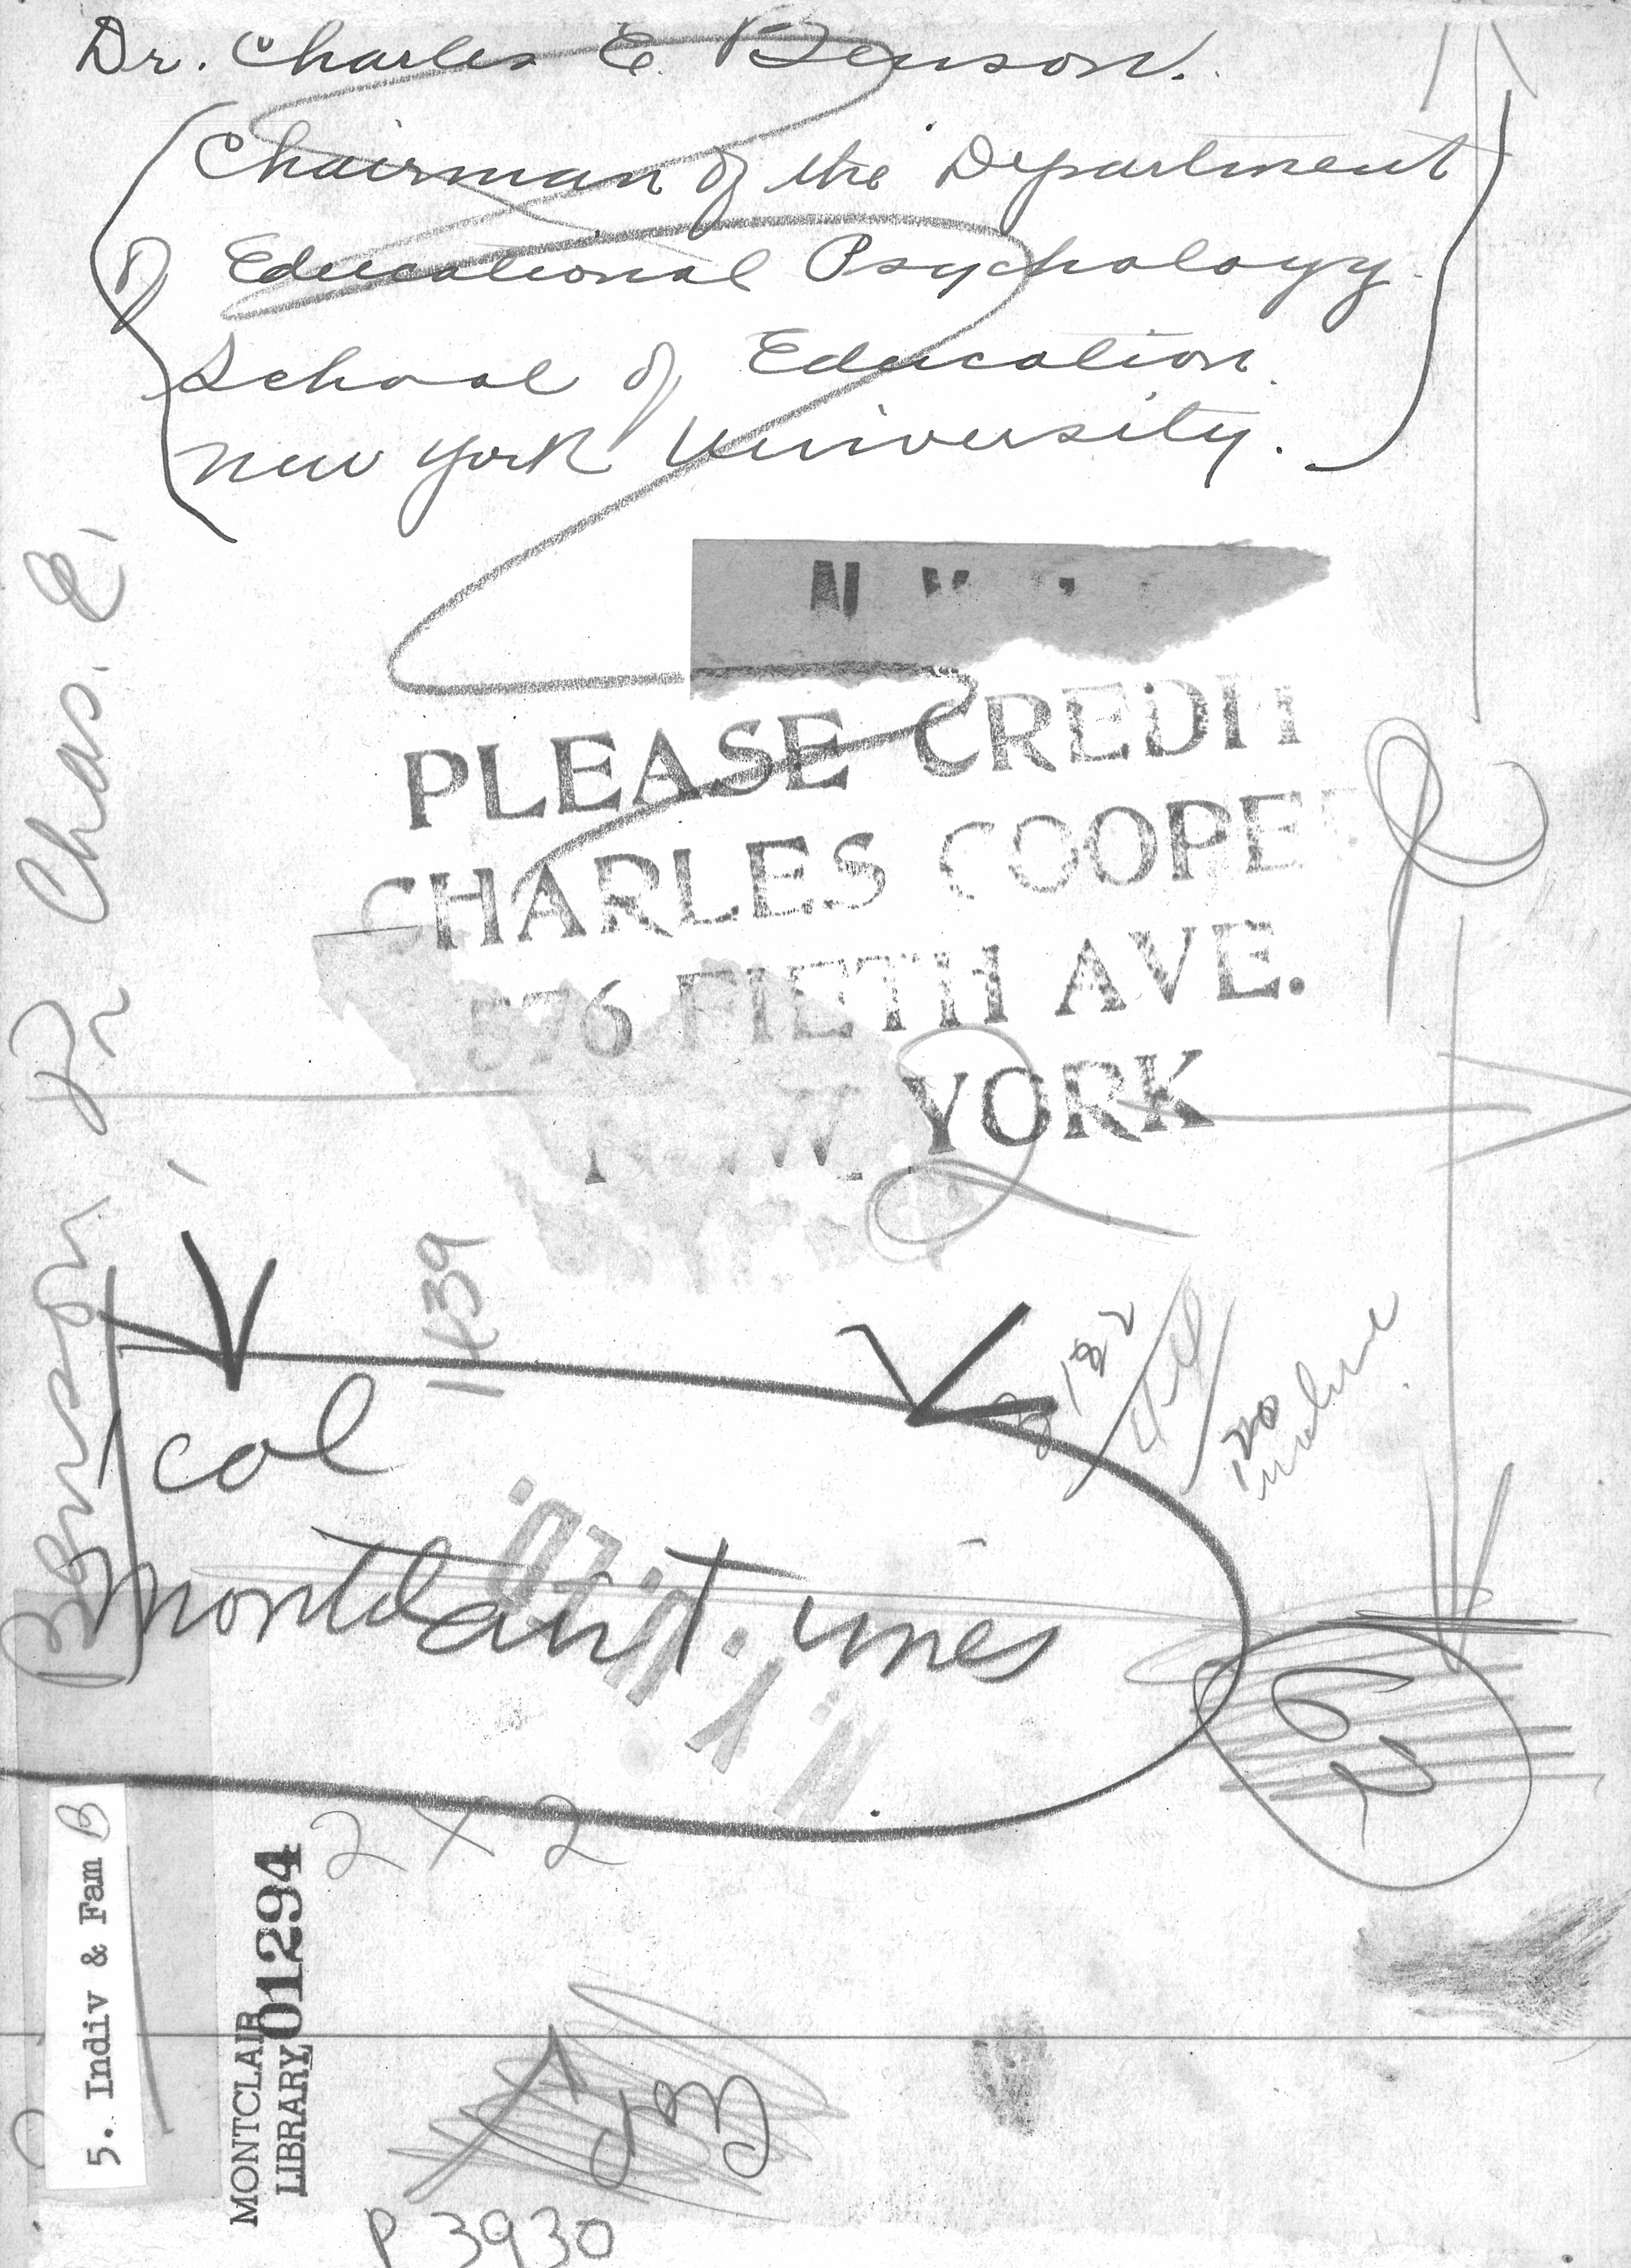 Dr. Charles E. Benson.
Chairman of the Department
of Educational Psychology.
School of Education.
New York University.
PLEASE CREDIT
CHARLES COOPE
576 FIFTH AVE.
NEW YORK
Benson, Dr Chas. E.
1439
1 col
Montclair Times
N.Y.U. ED.
2 x 2
5. Indiv & Fam B
MONTCLAIR
LIBRARY 01294
P 3930